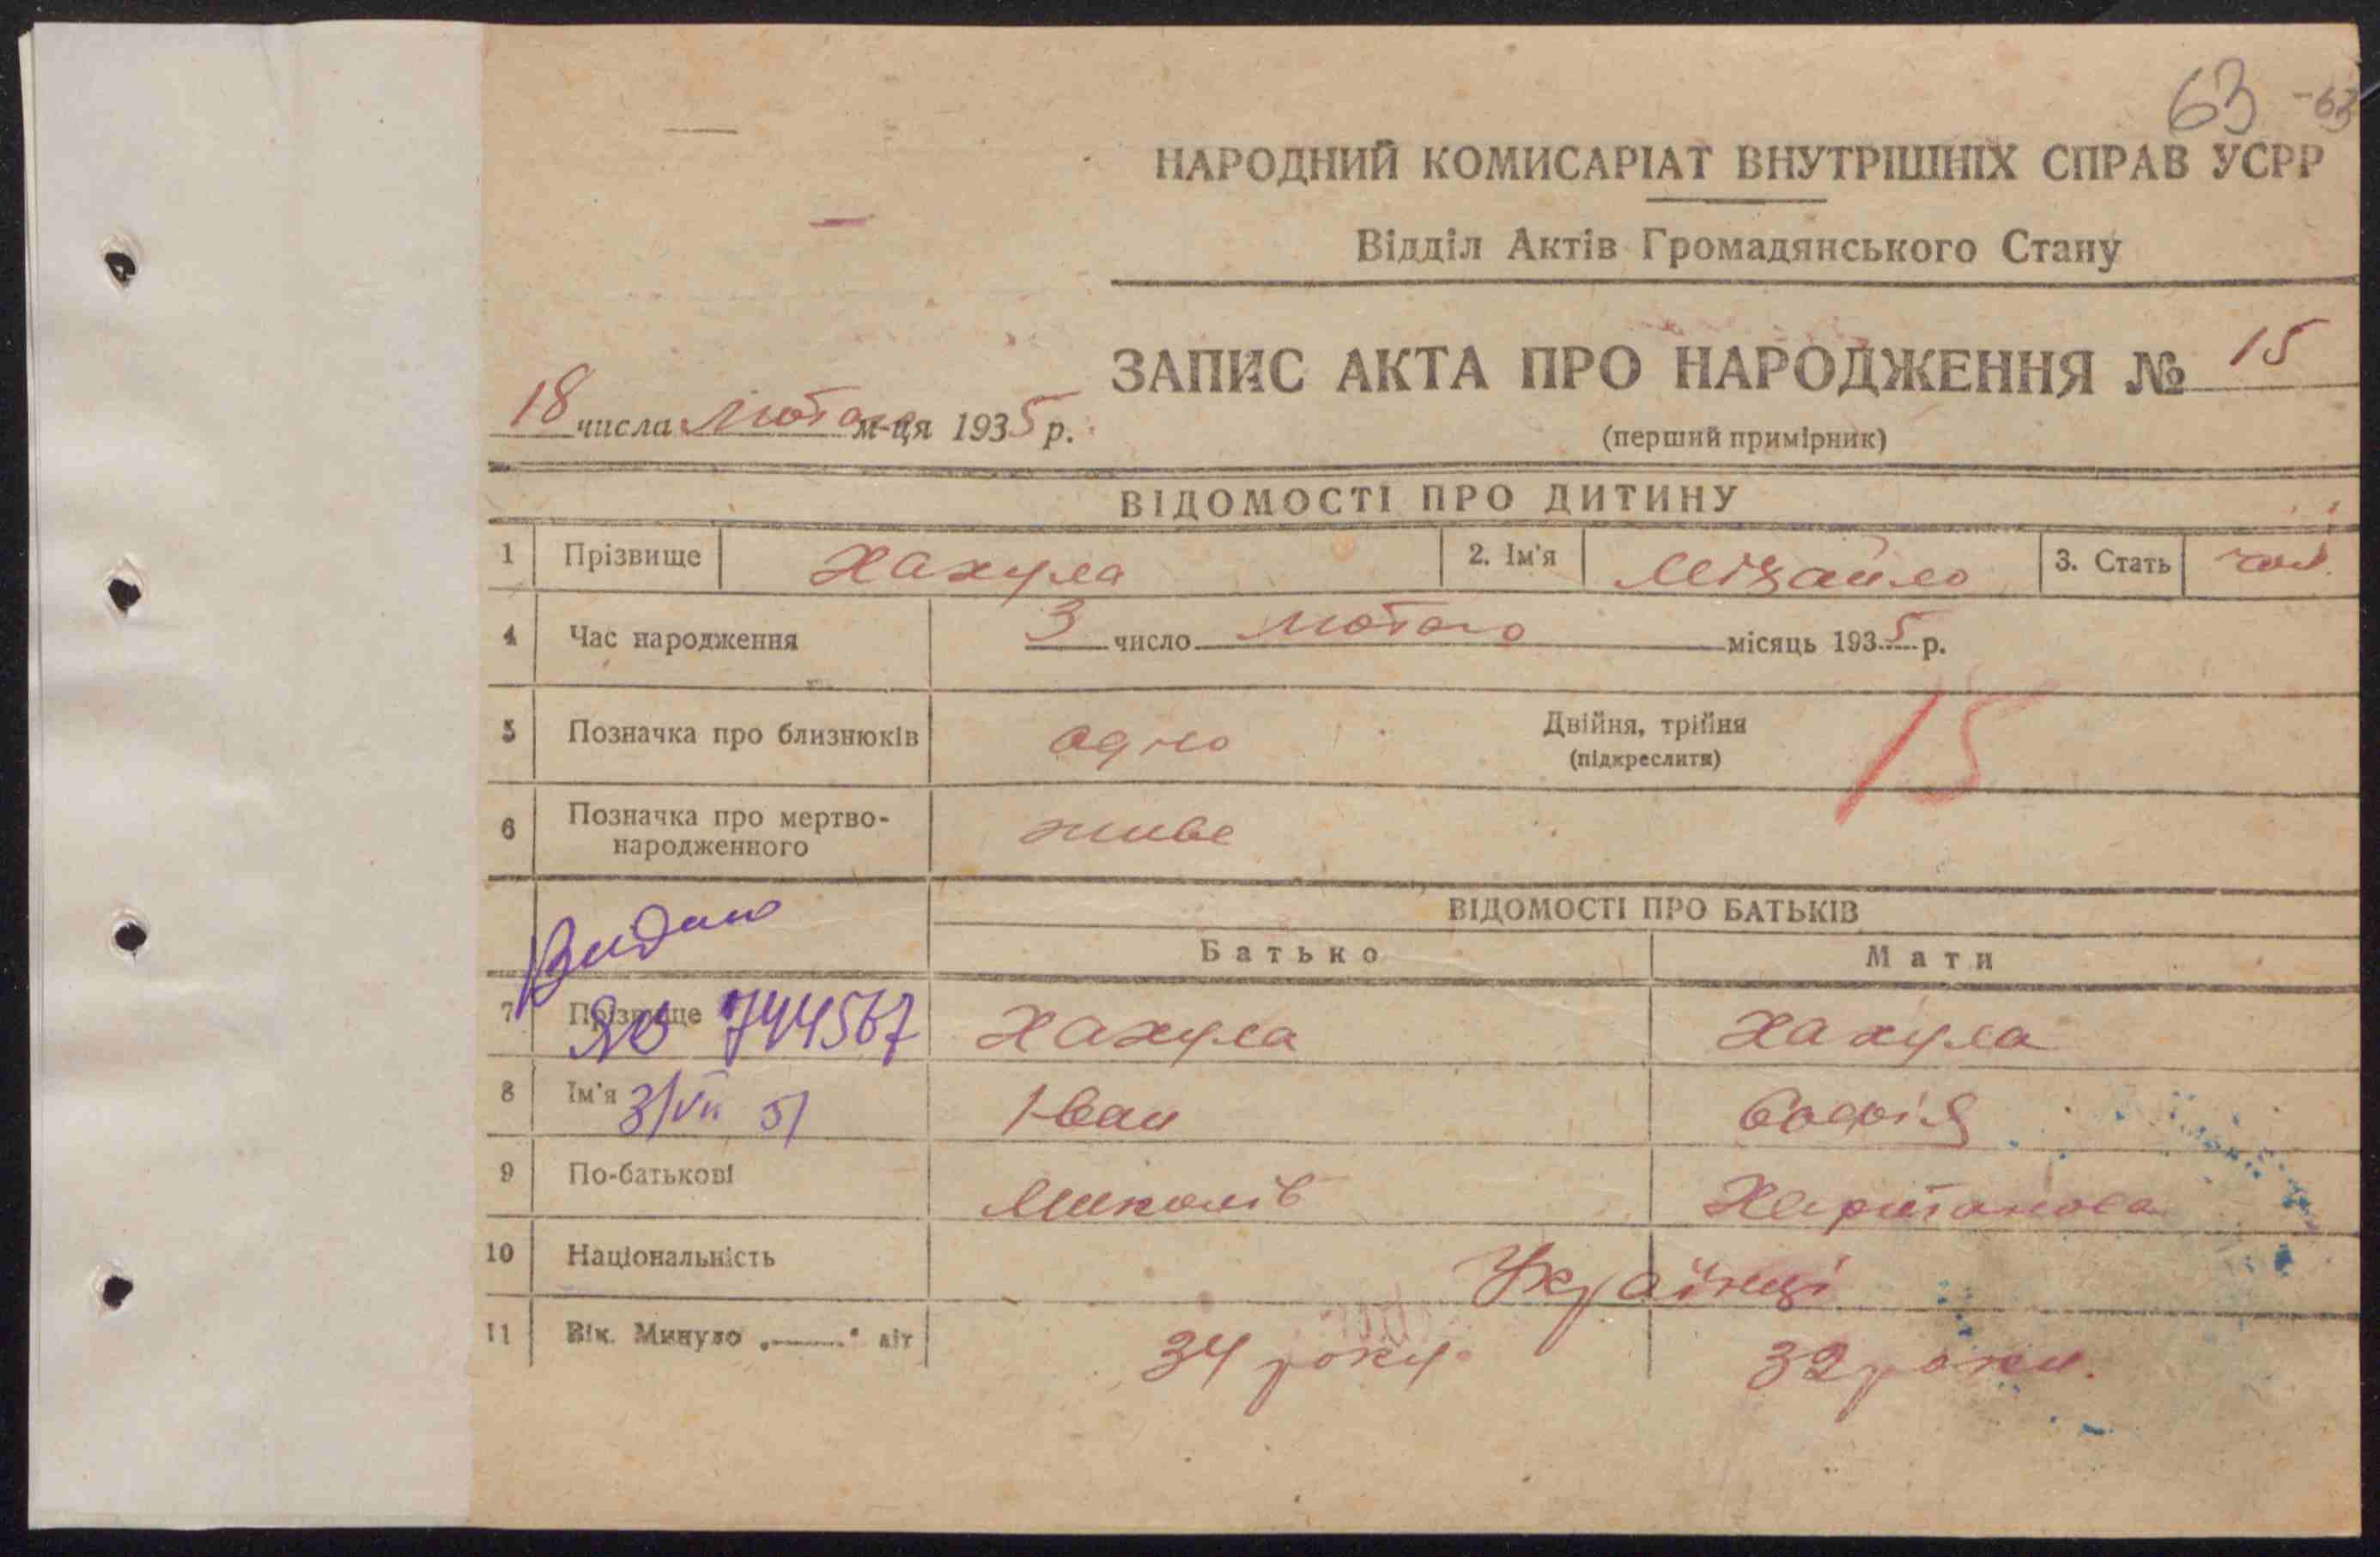 63 -63
НАРОДНИЙ КОМИСАРІАТ ВНУТРІШНІХ СПРАВ УСРР
Відділ Актів Громадянського Стану
ЗАПИС АКТА ПРО НАРОДЖЕННЯ № 15
18 числа Лютого м-ця 1935 р.
(перший примірник)
ВІДОМОСТІ ПРО ДИТИНУ
1 Прізвище Хахула 2. Ім'я Міхайло 3. Стать чол.
4 Час народження 3 число лютого місяць 1935 р.
5 Позначка про близнюків одно Двійня, трійня
(підкреслити)
15
6 Позначка про мертво-
народженного живе
ВІДОМОСТІ ПРО БАТЬКІВ
Видано
Батько Мати
7 Прізвище Хахула Хахула
744567
8 Ім'я Іван Софія
3/VII 51
9 По-батькові Миколів Харитонова
10 Національність Українці
11 Вік. Минуло „ " літ 34 роки 32 роки.